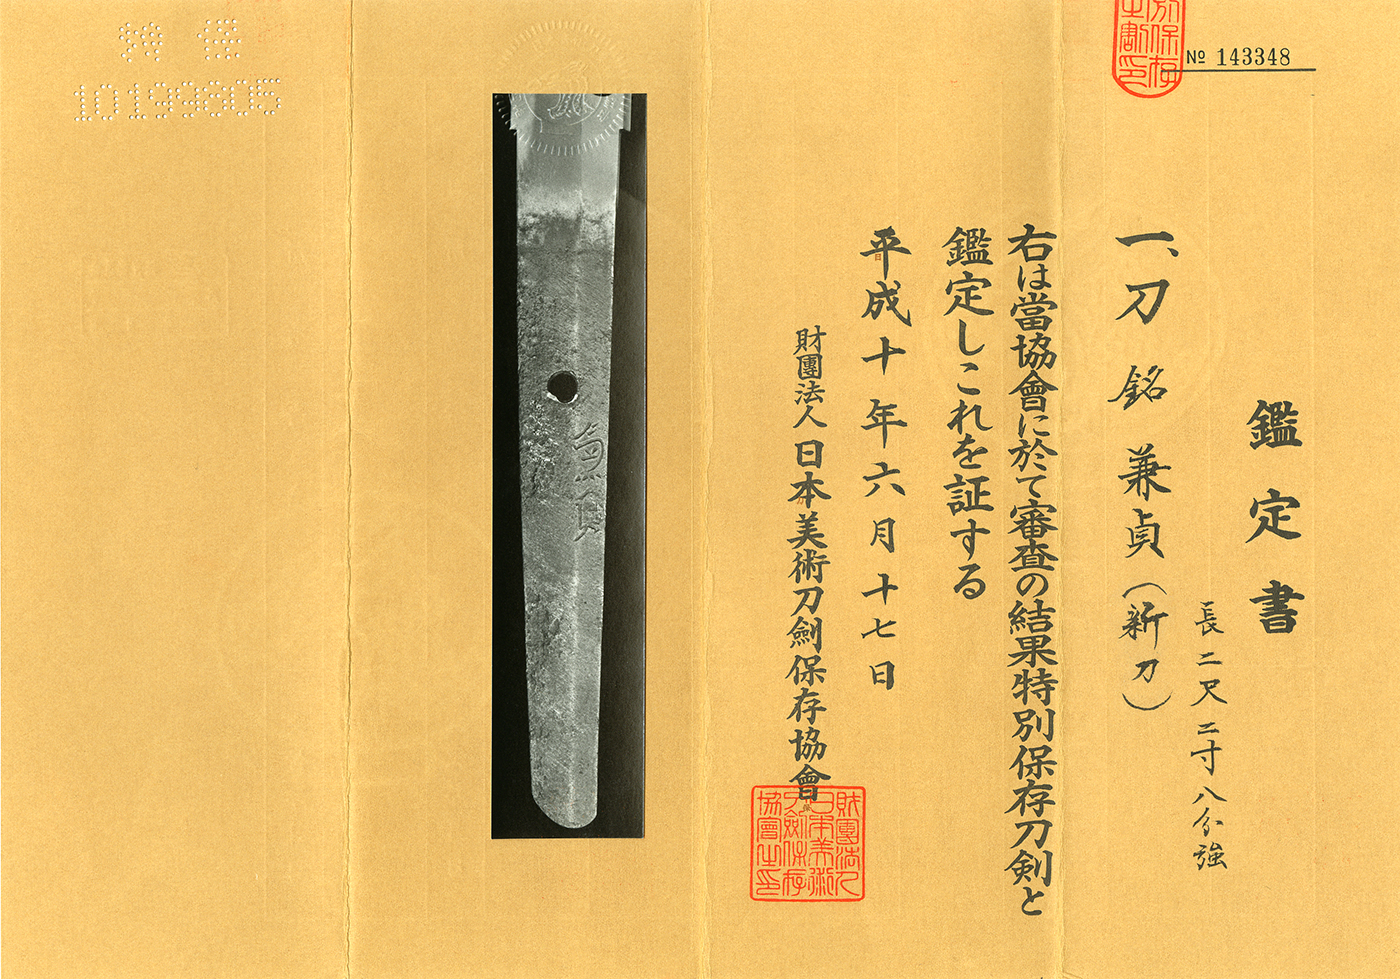 № 143348
鑑定書
長二尺二寸八分強
一、刀 銘 兼貞（新刀）
右は當協會に於て審査の結果特別保存刀剣と
鑑定しこれを証する
平成十年六月十七日
財團法人 日本美術刀劍保存協會
財團法人
日本美術
刀劍保存
協會之印
特保
10199805
兼貞